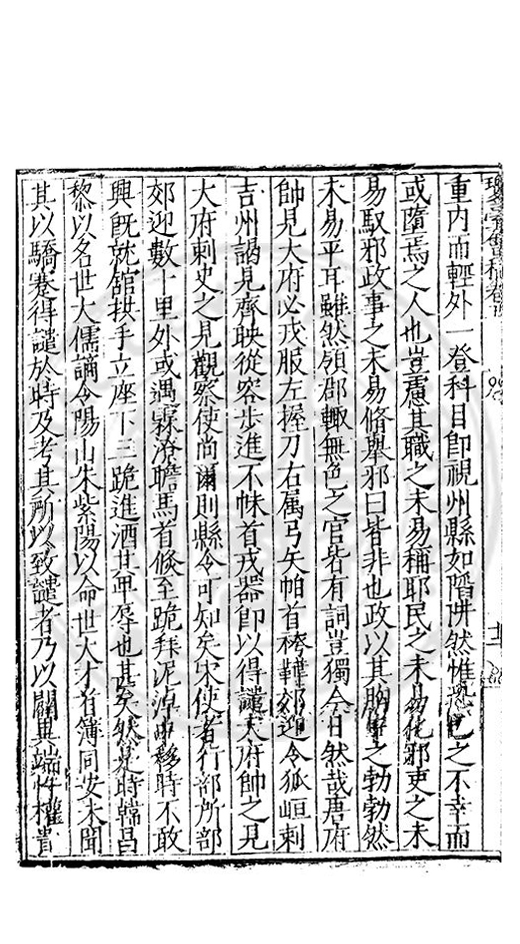 重内而輕外一登科目即視州縣如陷阱然惟恐己之不幸而
或墮焉之人也豈慮其職之未易稱耶民之未易化邪吏之未
易馭邪政事之未易脩舉邪曰皆非也政以其胸中之勃勃然
未易平耳雖然領郡輙無色之官皆有詞豈獨今日然哉唐府
帥見大府必戎服左握刀右属弓矢帕首袴鞾郊迎令狐峘刺
吉州謁見齊映從容步進不帓首戎器卽以得譴大府帥之見
大府刺史之見觀察使尚爾則縣令可知矣宋使者行部所部
郊迎數十里外或遇霖潦瞻馬首倐至跪拜泥淖中移時不敢
興旣就舘拱手立座下三跪進酒其卑辱也甚矣然是時韓昌
黎以名世大儒謫令陽山朱紫陽以命世大才首簿同安未聞
其以驕蹇得譴於時及考其所以致譴者乃以闢異端忤權貴